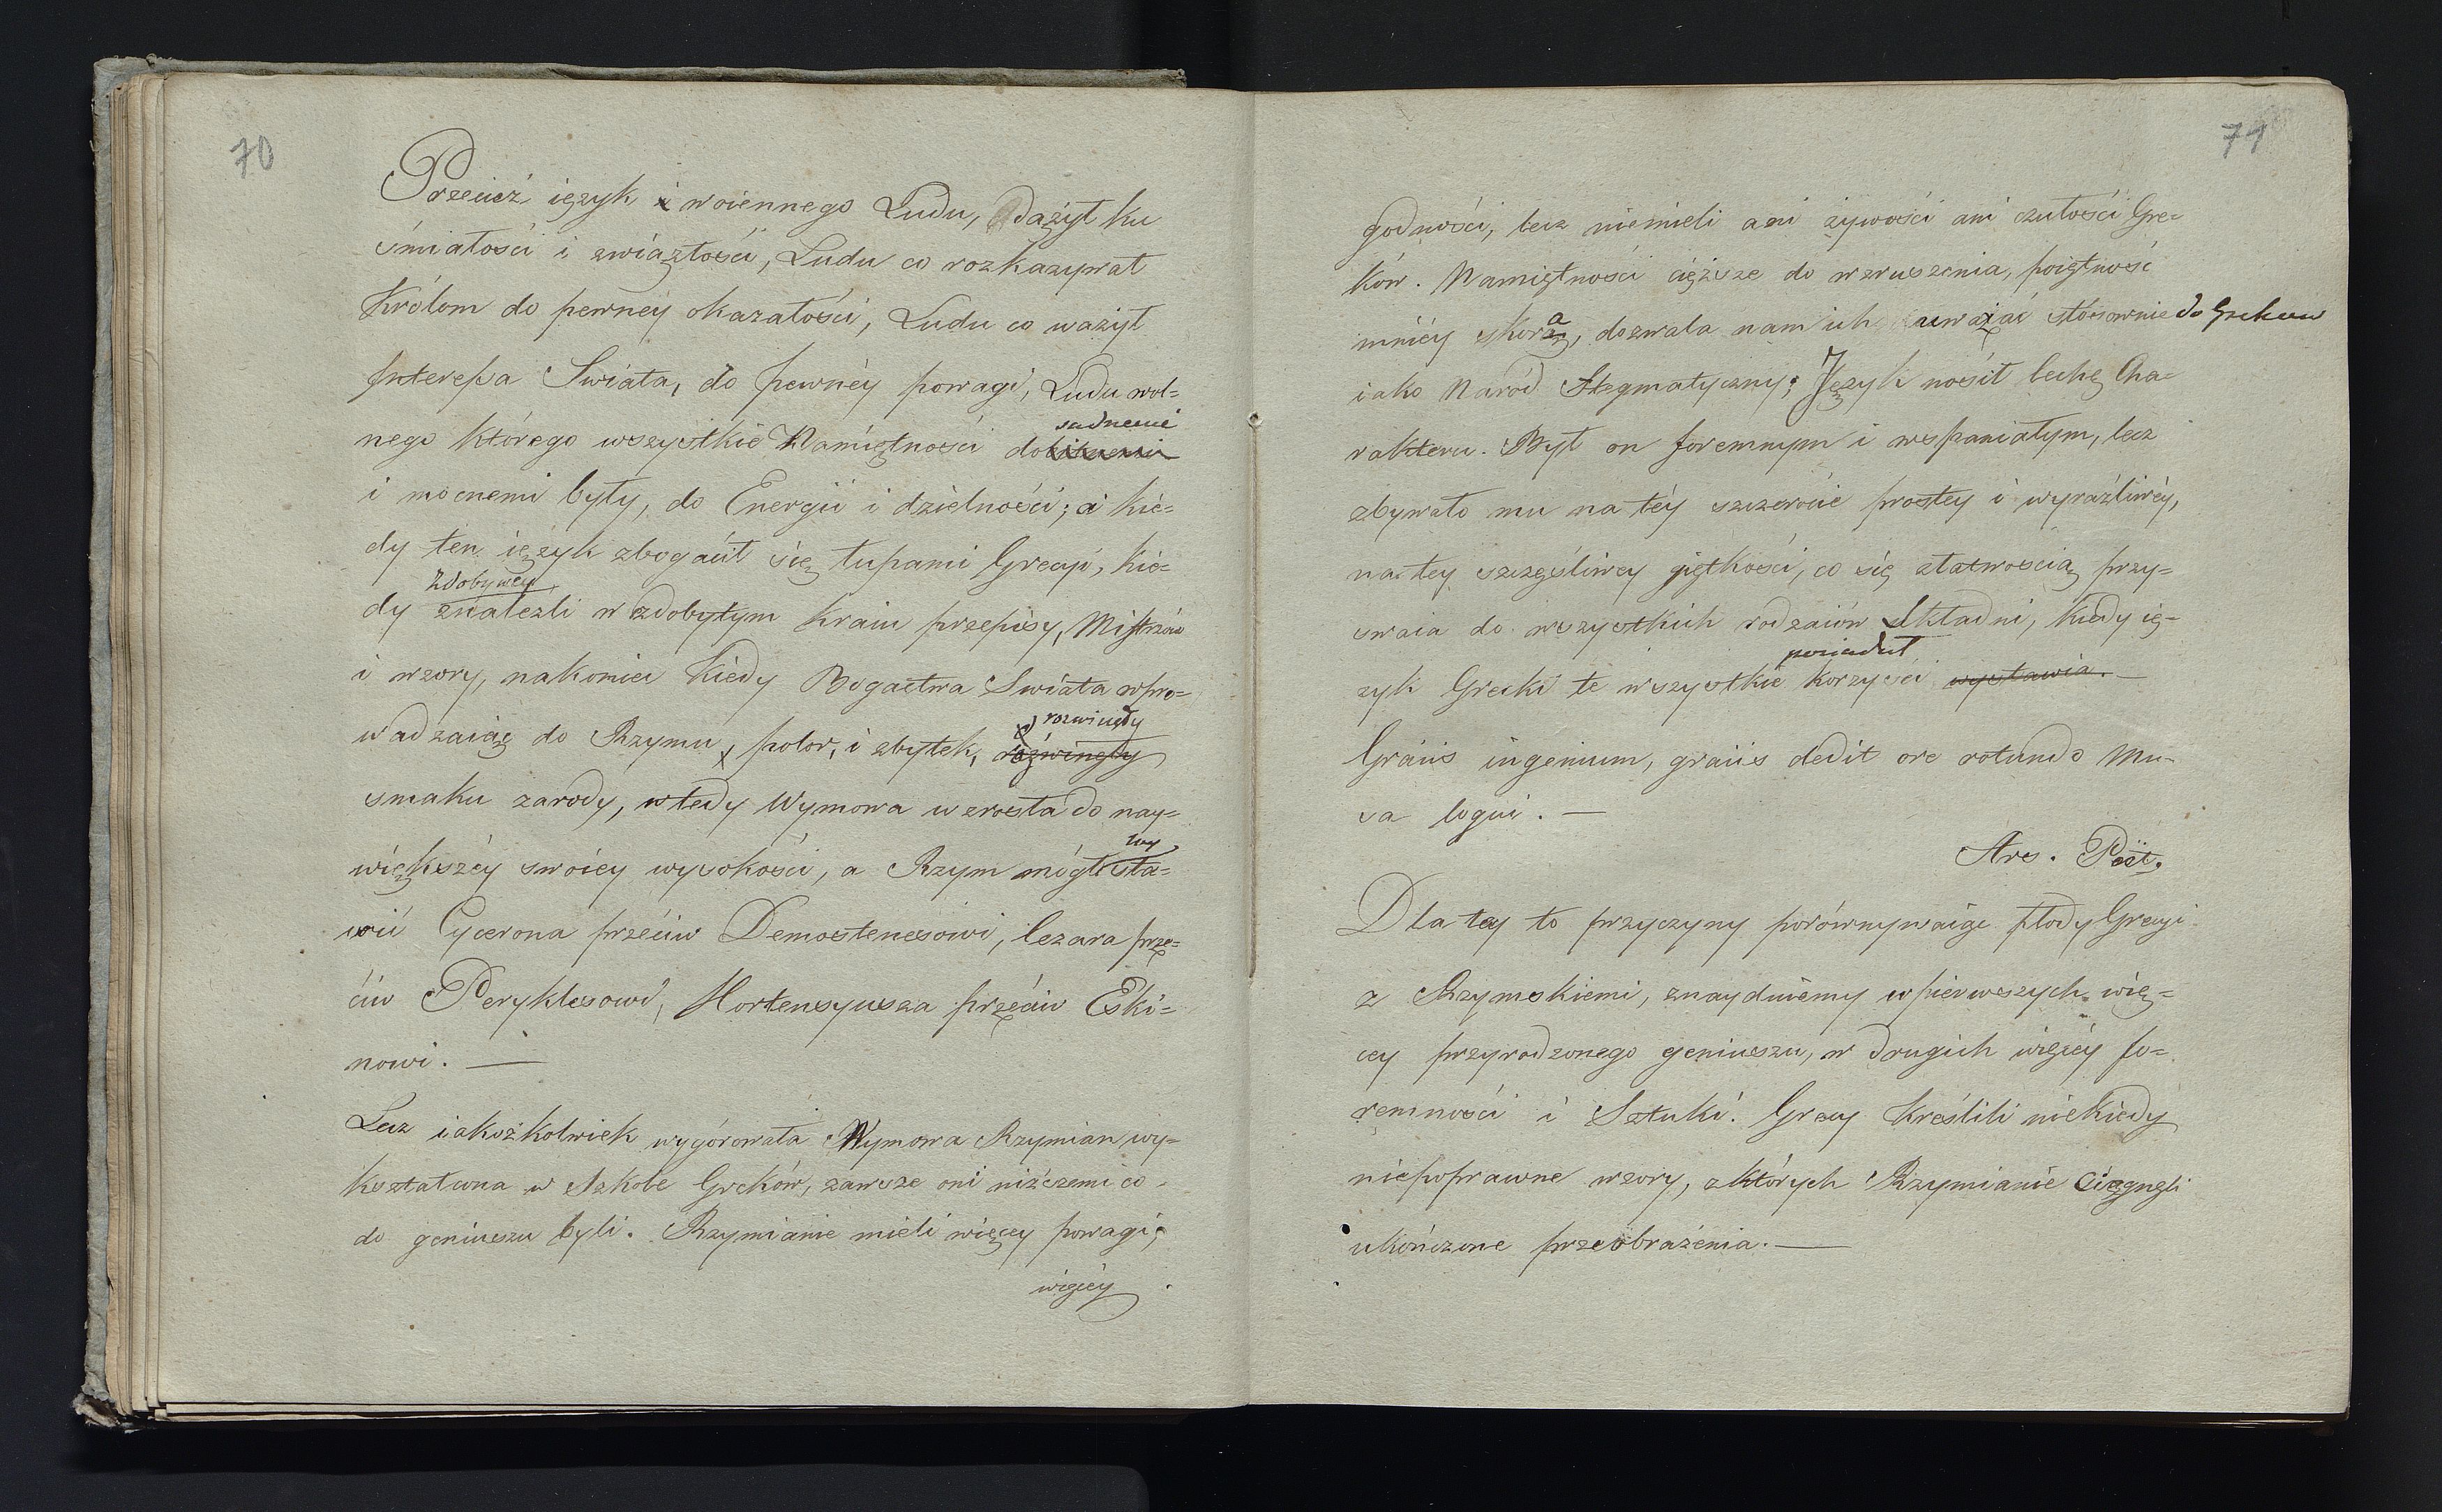 70
Przecież ięzyk woiennego Ludu, dążył ku
śmiałości i związłości, Ludu co rozkazywał
Królom do pewney okazałości, Ludu co ważył
Interessa Swiata, do pewnéy powagi, Ludu wol=
nego którego wszystkie Namiętności dosadnemi
i mocnemi były, do Energii i dzielności; a kie=
dy ten ięzyk zbogacił się łupami Grecyi, kie=
dy zdobywcy znalezli w zdobytym kraiu przepisy, Mistrzów
i wzory, nakoniec kiedy Bogactwa Swiata wpro=
wadzaiąc do Rzymu, polor, i zbytek, rozwinęły
smaku zarody, wtedy Wymowa wzrosła do nay=
większéy swoiey wysokości, a Rzym mógł wysta=
wić Cycerona przeciw Demostenesowi, Cezara prze=
ciw Peryklesowi, Hortensyusza przeciw Eski=
nowi. —
Lecz iakożkolwiek wygórowała Wymowa Rzymian wy=
kształcona w Szkole Greków, zawsze oni niższemi co
do geniuszu byli. Rzymianie mieli więcey powagi,
więcéy
71
godności, lecz niemieli ani żywości ani czułości Gre=
ków. Namiętności cięższe do wzruszenia, poiętność
mniéy skora, dozwala nam ich uważać stosownie do Greków
iako Naród flegmatyczny; Język nosił cechę Cha=
rakteru. Był on foremnym i wspaniałym, lecz
zbywało mu na téy szczerocie prostey i wyraźliwéy,
na tey szczęśliwey giętkości, co się złatwością przy=
swaia do wszystkich rodzaiów Składni, kiedy ię=
zyk Grecki te wszystkie korzyści posiadał wystawia. —
Graiis ingenium, graiis dedit ore rotundo Mu=
sa loqui. —
Ars. Poët.
Dla tey to przyczyny porównywaiąc płody Grecyi
z Rzymskiemi, znaydziemy w pierwszych wię=
cey przyrodzonego geniuszu, w drugich więcéy fo=
remności i Sztuki. Grecy kreślili niekiedy
niepoprawne wzory, z których Rzymianie ciągnęli
ukończone przeobrażenia. —